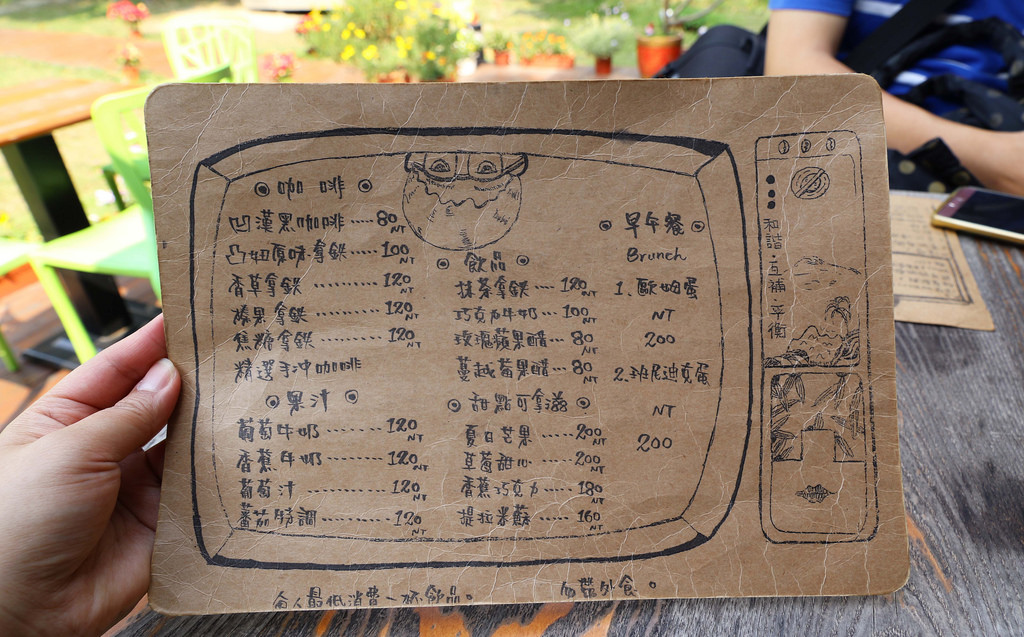 咖 啡
凹漢黑咖啡 ····· 80 NT
凸妞原味拿鉄 ···· 100 NT
香草拿鉄 ·········· 120 NT
榛果拿鉄 ·········· 120 NT
焦糖拿鉄 ·········· 120 NT
精選手冲咖啡
果汁
葡萄牛奶 ········ 120 NT
香蕉牛奶 ········ 120 NT
葡萄汁 ··········· 120 NT
蕃茄特調 ·········· 120 NT
飲品
抹茶拿鉄 ··· 120 NT
巧克力牛奶 ··· 100 NT
玫瑰蘋果醋 ··· 80 NT
蔓越莓果醋 ··· 80 NT
甜點可拿滋
夏日芒果 ······ 200 NT
草莓甜心 ······ 200 NT
香蕉巧克力 ···· 180 NT
提拉米蘇 ····· 160 NT
早午餐
Brunch
1. 歐姆蛋
NT
200
2. 班尼迪克蛋
NT
200
和諧·互補·平衡
每人最低消費一杯飲品。
勿帶外食。